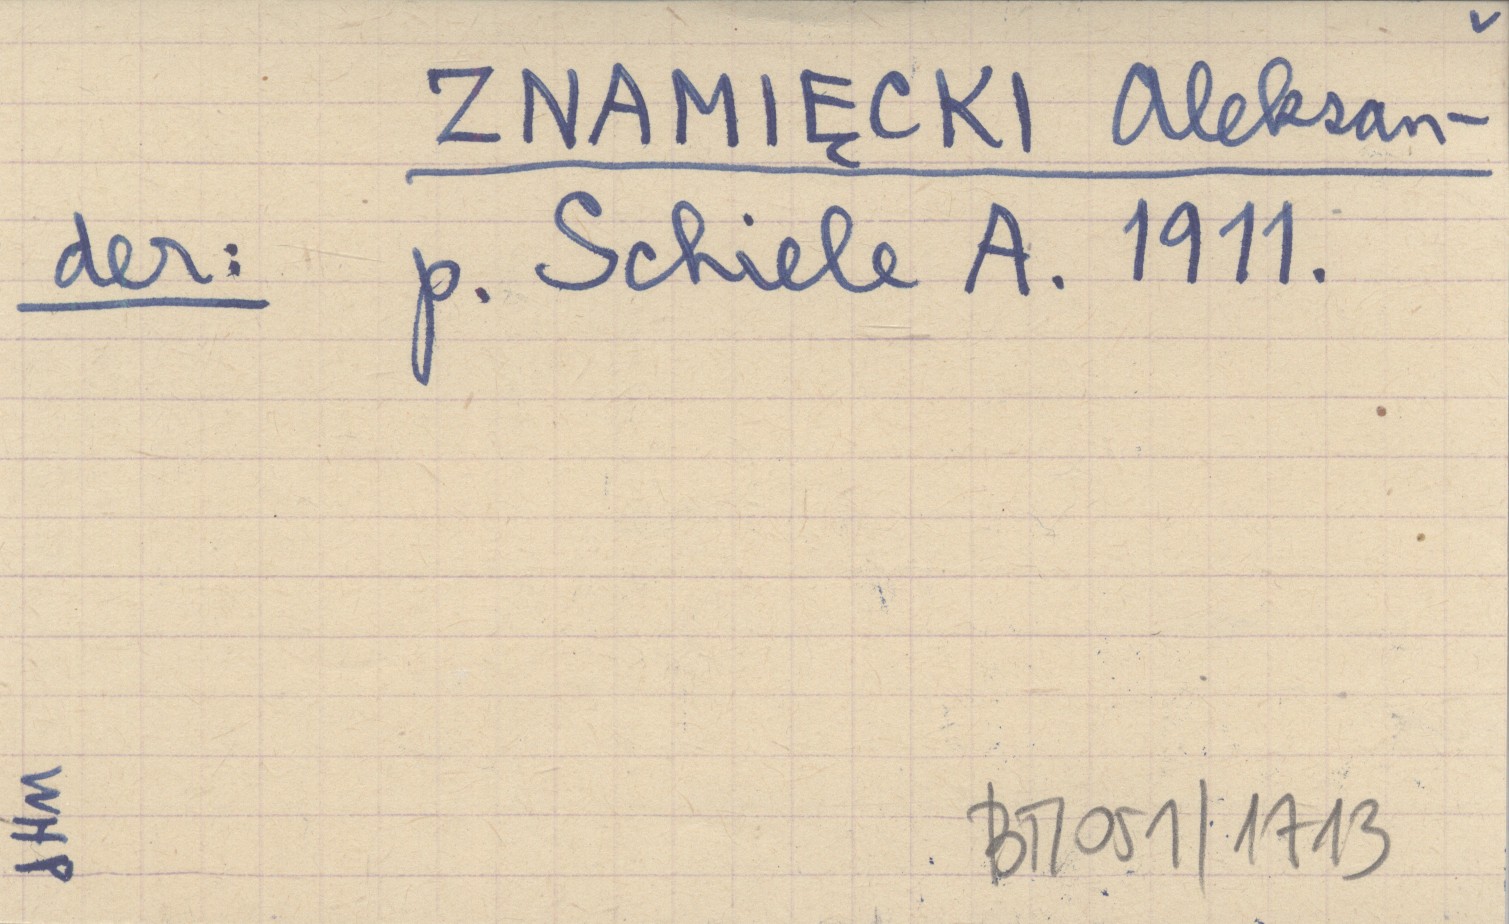 v
ZNAMIĘCKI Aleksan-
der: p. Schiele A. 1911.
WHP
BT/051/1713